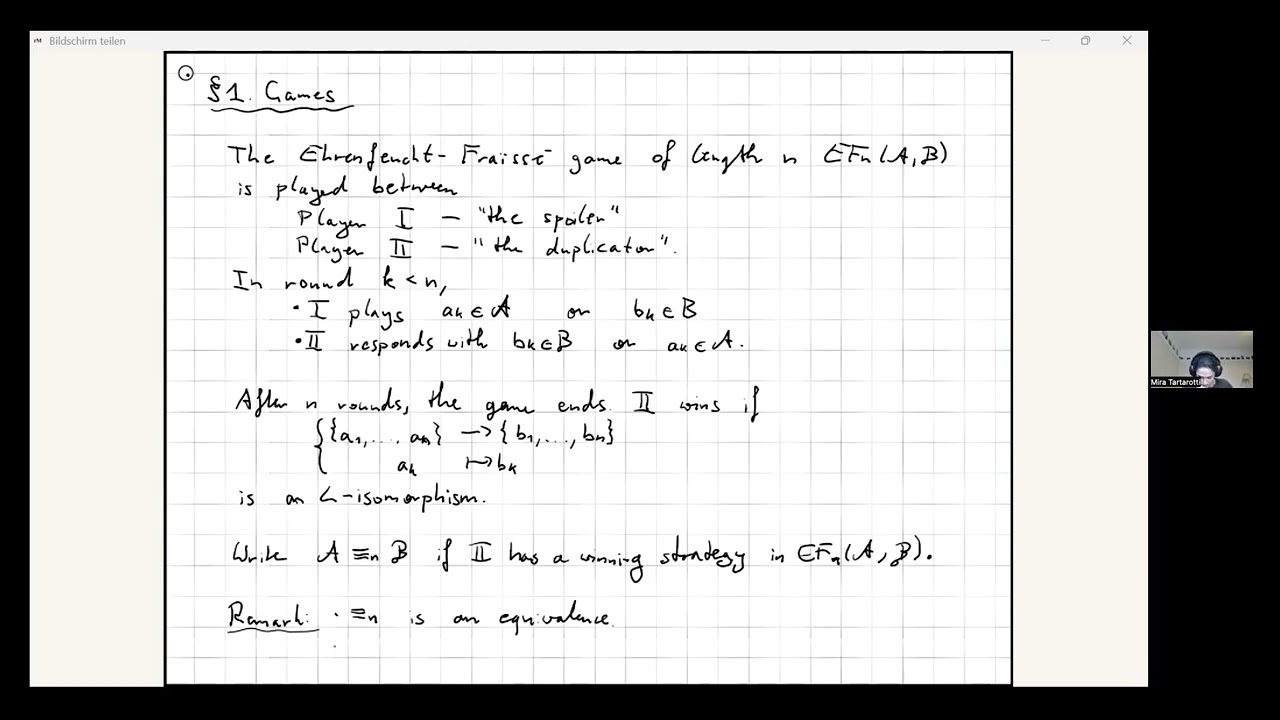 Bildschirm teilen
§1. Games
The Ehrenfeucht-Fraïssé game of length n EFn(A,B)
is played between
Player I – "the spoiler"
Player II – "the duplicator".
In round k < n,
• I plays ak ∈ A or bk ∈ B
• II responds with bk ∈ B or ak ∈ A.
After n rounds, the game ends. II wins if
{ {a1, ..., an} → {b1, ..., bn}
ak ↦ bk
is an L-isomorphism.
Write A ≡n B if II has a winning strategy in EFn(A, B).
Remark: · ≡n is an equivalence.
Mira Tartarotti